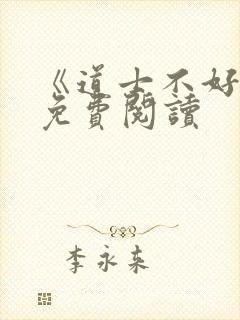 《道士不好
免費閱讀
李永來